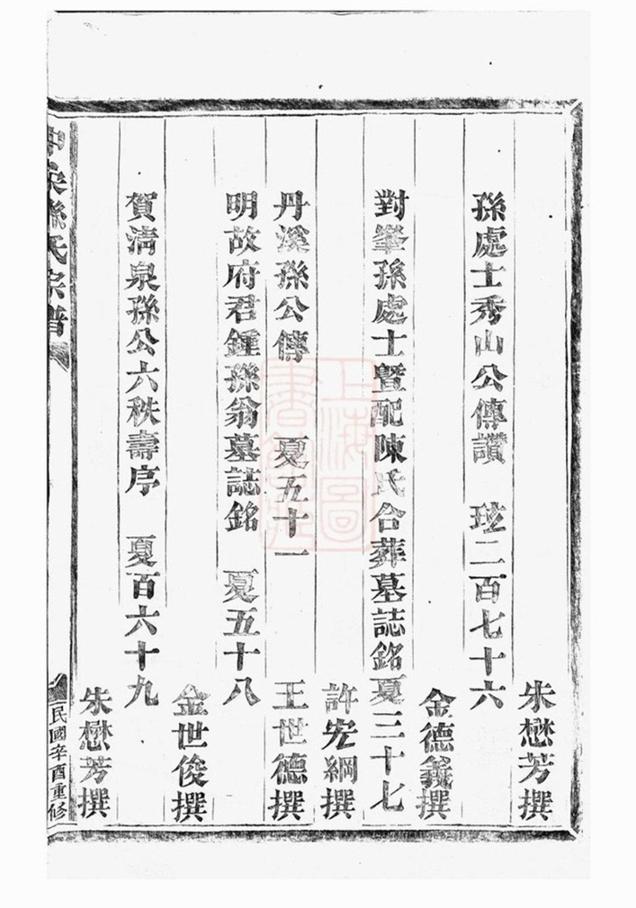 朱懋芳撰
孫處士秀山公傳讚　玹二百七十六
金德義撰
對峯孫處士暨配陳氏合葬墓誌銘夏三十七
許宏綱撰
丹溪孫公傳　夏五十一　王世德撰
明故府君鍾孫翁墓誌銘　夏五十八
金世俊撰
賀清泉孫公六秩壽序　夏百六十九
朱懋芳撰
孫氏宗譜
民國辛酉重修
上海圖
書館藏